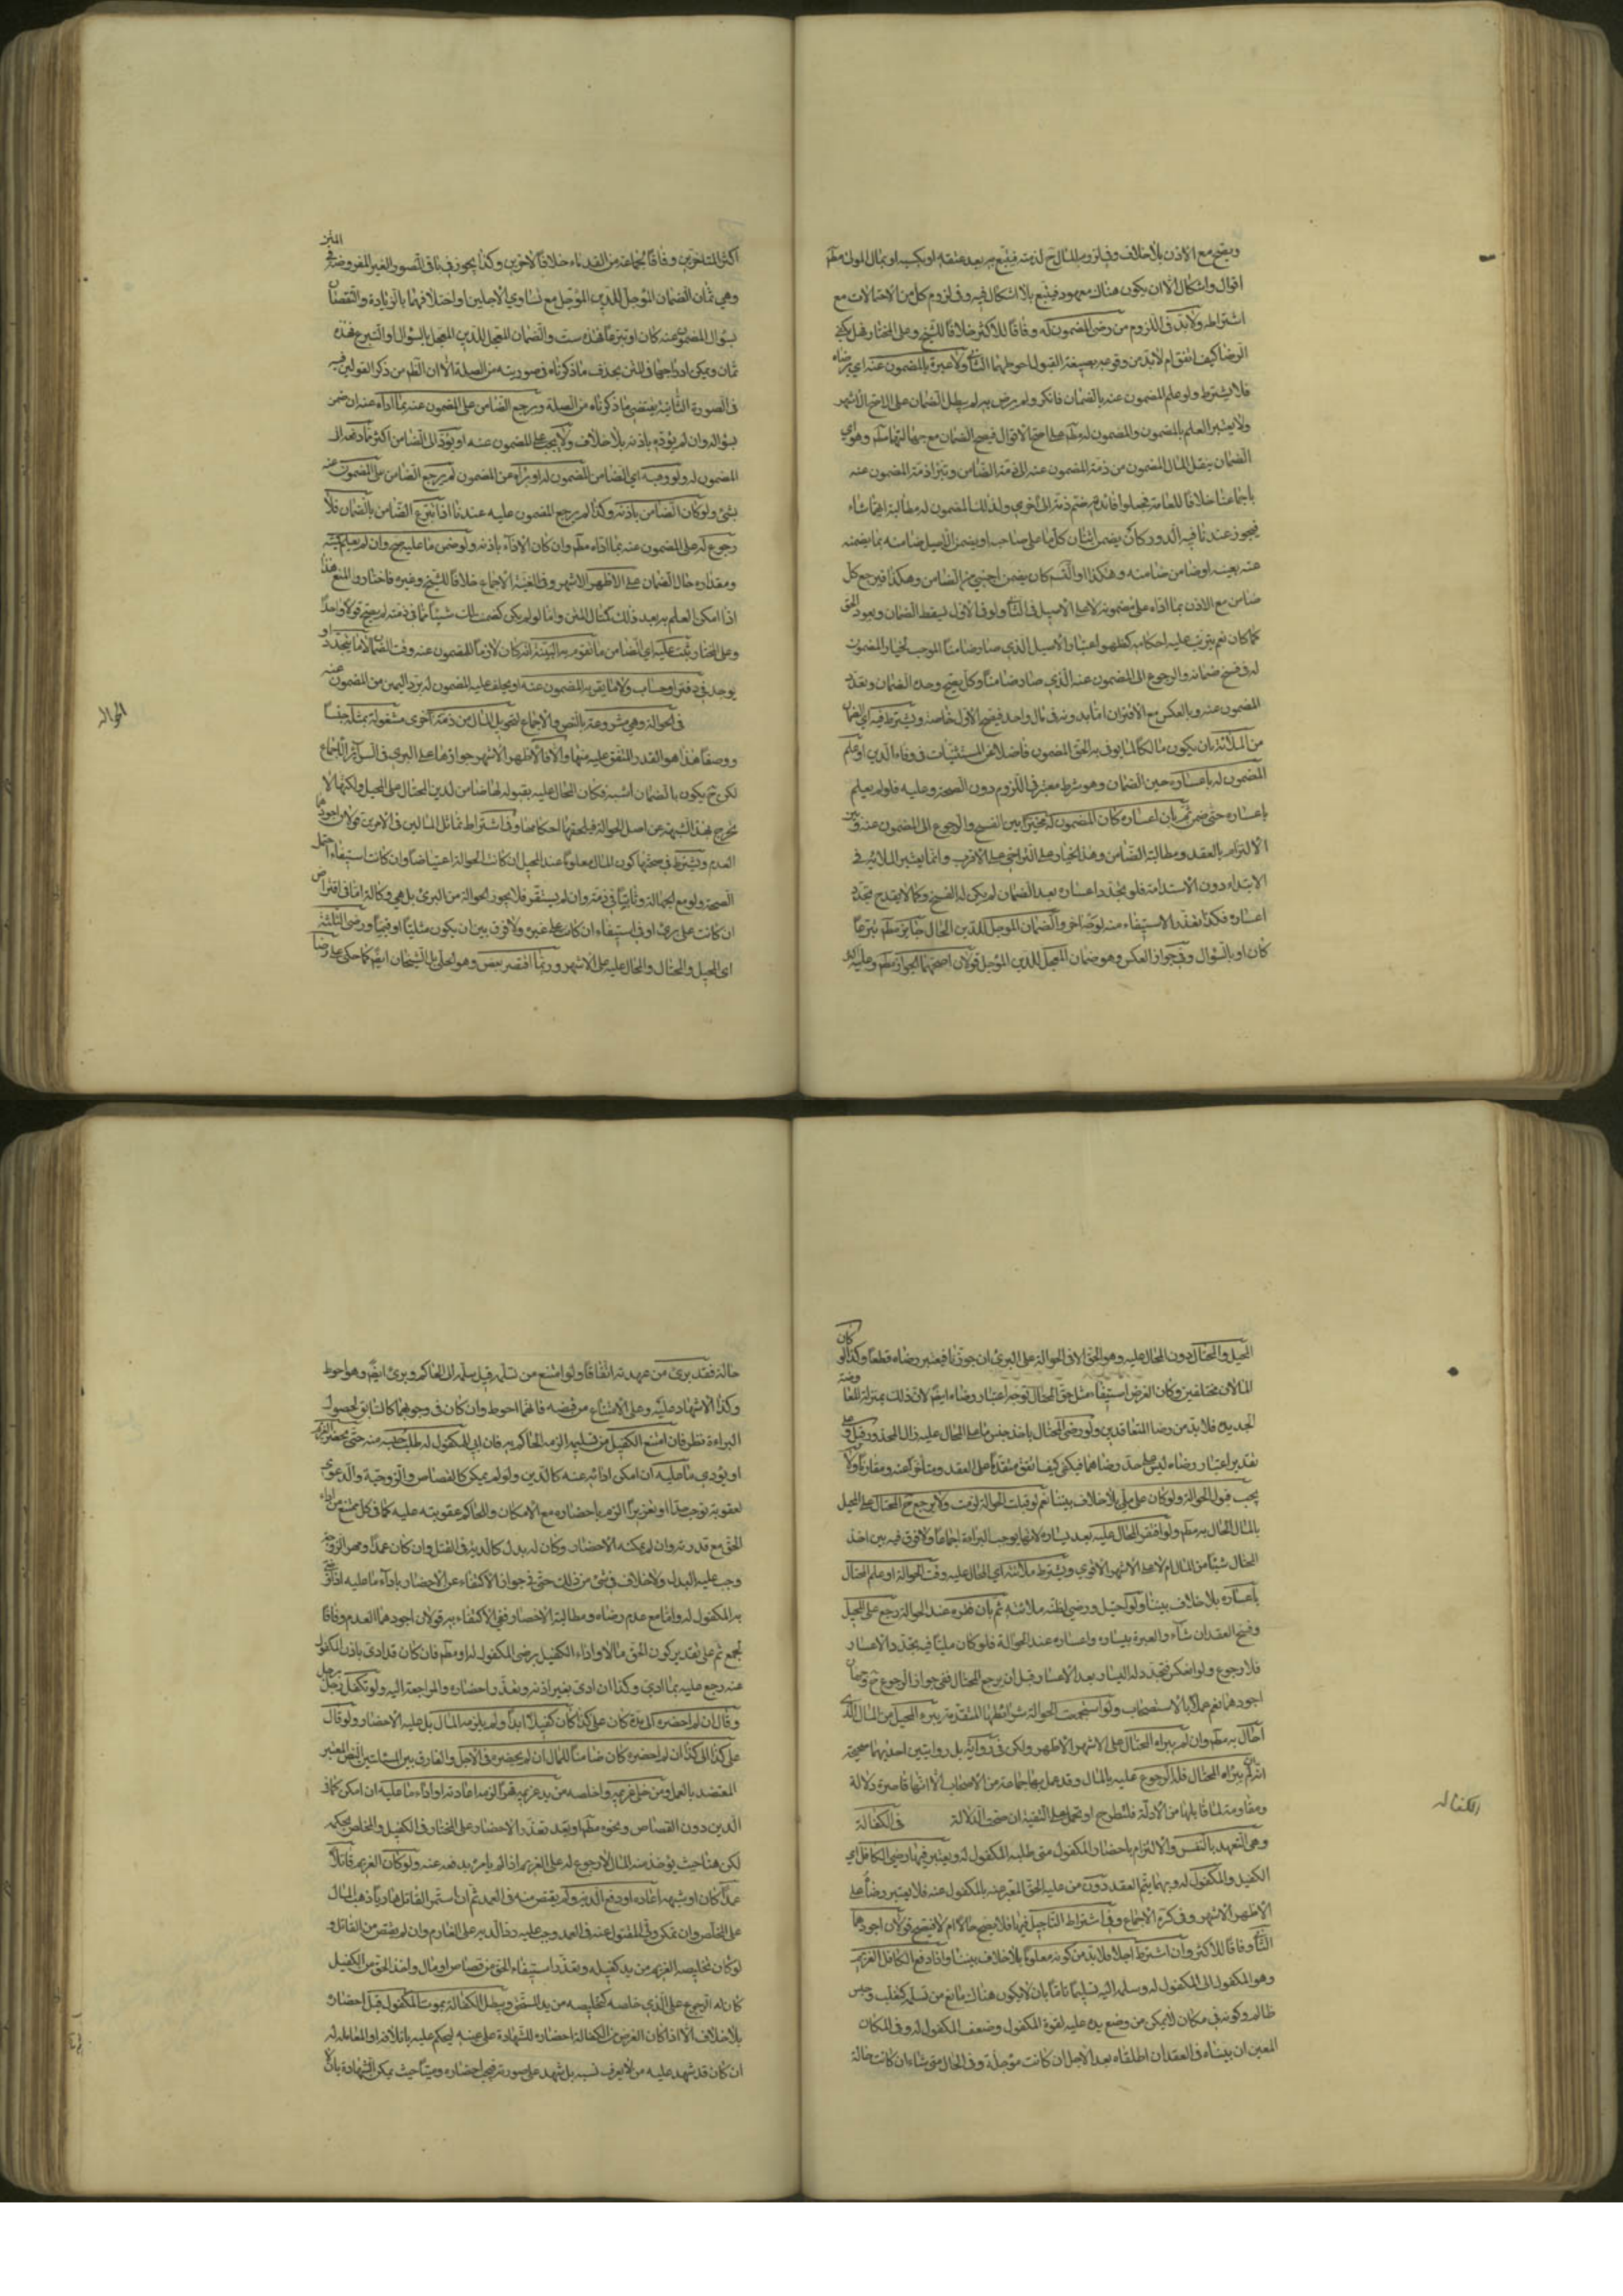 ويصح مع الاذن بلا خلاف وفي لزوم المال ح لذمته فيتبع به بعد عتقه او بكسبه او بمال المولى مطم
اقوال واشكال الا ان يكون هناك معهود فيتبع بلا اشكال فيه وفي لزوم كل من الاحتمالات مع
اشتراطه ولابد في اللزوم من رضى المضمون له وفاقا للاكثر خلافا للشيخ وعلى المختار فهل يكفي
الرضا كيف اتفق ام لابد من وقوعه بصيغة القبول احوطهما الثاني ولا عبرة بالمضمون عنه اي برضاه
فلا يشترط ولو علم المضمون عنه بالضمان فانكر ولم يرض به لم يبطل الضمان على الاشهر
ولا يعتبر العلم بالمضمون والمضمون له مطم على احتمالا قوال فيصح الضمان مع جهالتهما مطم وهو اي
الضمان ينقل المال المضمون من ذمة المضمون عنه الى ذمة الضامن وتبرأ ذمة المضمون عنه
باجماعنا خلافا للعامة فجعلوا فائدته ضم ذمة الى اخرى ولذلك المضمون له مطالبة ايهما شاء
فيجوز عندنا فيه الدور كان يضمن اثنان كل ما على صاحبه او يضمن الاصيل ضامنه بما يضمنه
عنه بعينه او ضامن ضامنه وهكذا او التسلسل كان يضمن اجنبي عن الضامن وهكذا فيرجع كل
ضامن مع الاذن بما اداه على مضمونه لا على الاصيل في الثاني ولو في الاول ليسقط الضمان ويعود الحق
كما كان نعم يترتب عليه احكامه كظهور اعسار الاصيل الذي صار ضامنا الموجب لخيار المضمون
له في فسخ ضمانه والرجوع الى المضمون عنه الذي صار ضامنا وكل يصح وحدة الضمان وتعدد
المضمون عنه وبالعكس مع الاقتران اما بدونه في مال واحد فيصح الاول خاصة ويشترط فيه اي الضمان
من الملائة بان يكون مالكا لما يوفى به الحق المضمون فاضلا عن المستثنيات في وفاء الدين او علم
المضمون له باعساره حين الضمان وهو شرط معتبر في اللزوم دون الصحة وعليه فلو لم يعلم
باعساره حتى ضمن ثم بان اعساره كان المضمون له مخيرا بين الفسخ والرجوع الى المضمون عنه وبين
الالتزام بالعقد ومطالبة الضامن وهذا الخيار على التراخي على الاقرب وانما يعتبر الملائة في
الابتداء دون الاستدامة فلو تجدد اعساره بعد الضمان لم يكن له الفسخ وكما لا يقدح تجدد
اعساره فكذا تعذر الاستيفاء منه لوجه آخر والضمان المؤجل للدين الحال جائز مطم تبرعا
كان او بالسؤال وفي جواز العكس وهو ضمان المعجل للدين المؤجل قولان اصحهما الجواز مطم وعليه
المتن
اكثر المتاخرين وفاقا لجماعة من القدماء خلافا لآخرين وكذا يجوز في باقي الصور الغير المفروضة في
وهي ثمان الضمان المؤجل للدين المؤجل مع تساوي الاجلين او اختلافهما بالزيادة والنقصان
بسؤال المضمون عنه كان او تبرعا فهذه ست والضمان المعجل للدين المعجل بالسؤال او التبرع فهذه
ثمان ويمكن ادراجها في المتن بحذف ما ذكرناه في صورتيه من الصلة الا ان الظم من ذكر القولين فيه
في الصورة الثانية يقتضي ما ذكرناه من الصلة ويرجع الضامن على المضمون عنه بما اداه عنه ان ضمن
بسؤاله وان لم يؤد باذنه بلا خلاف ولا يجب على المضمون عنه ان يؤدي الى الضامن اكثر مما دفعه الى
المضمون له ولو وهبه اي الضامن المضمون له او ابرأه من المضمون لم يرجع الضامن على المضمون عنه
بشئ ولو كان الضامن باذنه وكذا لم يرجع المضمون عليه عندنا اذا تبرع الضامن بالضمان فلا
رجوع له على المضمون عنه بما اداه مطم وان كان الاداء باذنه ولو ضمن ما عليه صح وان لم يعلم كميته
ومقداره حال الضمان على الاظهر الاشهر وفي الغنية الاجماع خلافا للشيخ وغيره فاختاروا المنع هذا
اذا امكن العلم به بعد ذلك كمثال المتن واما لو لم يكن كضمنت لك شيئا مما في ذمته لم يصح قولا واحدا
وعلى المختار يثبت عليه اي الضامن ما تقوم به البينة انه كان لازما للمضمون عنه وقت الضمان لا ما يتجدد او
يوجد في دفتر او حساب ولا ما يقر به المضمون عنه او يحلف عليه المضمون له برد اليمين من المضمون عنه
في الحوالة وهي مشروعة بالنص والاجماع لتحويل المال من ذمة الى اخرى مشغولة بمثله جنسا
الحواله
ووصفا هذا هو القدر المتفق عليه منها والا فالاظهر الاشهر جوازها على البرئ وفي السرائر الاجماع
لكن ح يكون بالضمان اشبه فكان المحال عليه بقبوله لها ضامن لدين المحتال على المحيل ولكنها لا
تخرج بهذا الشبهة عن اصل الحوالة فيلحقها احكامها وفي اشتراط تماثل المالين في الامرين قولان اجودهما
العدم ويشترط في صحتها كون المال معلوما عند المحيل ان كانت الحوالة اعتياضا وان كانت استيفاء احتمل
الصحة ولو مع الجهالة وثابتا في ذمته وان لم يستقر فلا يجوز الحوالة من البرئ بل هي وكالة اما في اقتراض
ان كانت على برئ او في استيفاء ان كان على غيره ولا فرق بين ان يكون مثليا او قيميا ورضى الثلثة
اي المحيل والمحتال والمحال عليه على الاشهر وربما اقتصر بعض وهو الحلبي بل الشيخان ايضا كما حكي على رضا
كان
المحيل والمحتال دون المحال عليه وهو الحق الا في الحوالة على البرئ ان جوزنا فيعتبر رضاه قطعا وكذا لو
المالان مختلفين وكان الغرض استيفاء مثل حق المحتال توجه اعتبار رضاه ايضا لان ذلك بمنزلة المعاوضة
الجديدة فلا بد من رضا المتعاقدين ولو رضى المحتال باخذ جنس ما على المحال عليه زال المحذور قيل وعلى
تقدير اعتبار رضاه ليس على حد رضاهما فيكفي كيف اتفق متقدما على العقد ومتأخرا عنه ومقارنا ولا
يجب قبول الحوالة ولو كان على ملي بلا خلاف بيننا نعم لو قبلت الحوالة لزمت ولا يرجع ح المحتال على المحيل
بالمال المحال به مطم ولو افتقر المحال عليه بعد يساره لانها يوجب البراءة اجماعا ولا فرق فيه بين اخذ
المحتال شيئا من المال ام لا على الاشهر الاقوى ويشترط ملائته اي المحال عليه وقت الحوالة او علم المحتال
باعساره بلا خلاف بيننا ولو احيل ورضي لظنه ملائته ثم بان فقره عند الحوالة رجع على المحيل
وفسخ العقد ان شاء والعبرة بيساره واعساره عند الحوالة فلو كان مليا فيه تجدد الاعسار
فلا رجوع ولو انعكس فتجدد له اليسار بعد الاعسار وقبل ان يرجع المحتال ففي جواز الرجوع ح وجهان
اجودهما نعم عملا بالاستصحاب ولو استجمعت الحوالة شرائطها المتقدمة يبرء المحيل من المال الذي
احال به مطم وان لم يبرأه المحتال على الاشهر الاظهر ولكن في رواية بل روايتين احديهما صحيحة
انه ان لم يبرأه المحتال فله الرجوع عليه بالمال وقد عمل بها جماعة من الاصحاب الا انها قاصرة دلالة
ومقاومة لما قابلها من الادلة فلتطرح او تحمل على التقية ان صحت الدلالة في الكفالة
الكفاله
وهي التعهد بالنفس والالتزام باحضار المكفول متى طلبه المكفول له ويعتبر فيها رضى الكافل اي
الكفيل والمكفول له وبهما يتم العقد دون من عليه الحق المعبر عنه بالمكفول عنه فلا يعتبر رضاه على
الاظهر الاشهر وفي كرة الاجماع وفي اشتراط التأجيل فيها فلا يصح حالا ام لا فيصح قولان اجودهما
الثاني وفاقا للاكثر وان اشترط اجلا فلا بد من كونه معلوما بلا خلاف بيننا واذا دفع الكافل الغريم
وهو المكفول الى المكفول له وسلمه اليه تسليما تاما بان لا يكون هناك مانع من تسلمه كتغلب وحبس
ظالم وكونه في مكان لا يمكن من وضع يده عليه لقوة المكفول وضعف المكفول له وفي المكان
المعين ان بيناه في العقد ان اطلقاه بعد الاجل ان كانت مؤجلة وفي الحال متى شاء ان كانت حالة
حالة فقد برئ من عهدته اتفاقا ولو امتنع من تسلمه قيل سلمه الى الحاكم وبرئ ايضا وهو احوط
وكذا الاشهاد عليه وعلى الامتناع من قبضه فانهما احوط وان كان في وجوبهما كالسابق لحصول
البراءة نظر فان امتنع الكفيل من تسليمه الزمه الحاكم به فان ابى المكفول له طلب حبسه منه حتى يحضر الغريم
او يؤدي ما عليه ان امكن ادائه عنه كالدين ولو لم يمكن كالقصاص والزوجية والدعوى
لعقوبة توجب حدا او تعزيرا الزمه باحضاره مع الامكان وللحاكم عقوبته عليه كما في كل ممتنع من اداء
الحق مع قدرته وان لم يمكنه الاحضار وكان له بدل كالدية في القتل وان كان عمدا ومهر الزوجة
وجب عليه البدل ولا خلاف في شئ من ذلك حتى في جواز الاكتفاء عن الاحضار باداء ما عليه اذا رضى
به المكفول له واما مع عدم رضاه ومطالبته الاحضار ففي الاكتفاء به قولان اجودهما العدم وفاقا
لجمع ثم على تقدير كون الحق مالا واداء الكفيل برضى المكفول له او مطم فان كان قد ادى باذن المكفول
عنه رجع عليه بما ادى وكذا ان ادى بغير اذنه وتعذر احضاره والمراجعة اليه ولو تكفل رجل برجل
وقال ان لم احضره الى مدة كان علي كذا كان كفيلا ابدا ولم يلزمه المال بل عليه الاحضار ولو قال
علي كذا الى كذا ان لم احضره كان ضامنا للمال ان لم يحضره في الاجل والفارق بين المسئلتين النص المعتبر
المعتضد بالعمل ومن خلى غريم واخلصه من يد غريمه قهرا الزم اعادته او اداء ما عليه ان امكن كما في
الدين دون القصاص ونحوه مطم وبعد تعذر الاحضار على المختار في الكفيل والخلاص بحكمه
لكن هنا حيث يؤخذ منه المال لا رجوع له على الغريم اذا لم يامره بدفعه عنه ولو كان الغريم قاتلا
عمدا كان او شبهه اعاده او دفع الدية ولم يقتص منه في العمد ثم ان استمر القاتل هاربا ذهب المال
على المخلص وان تمكن ولي المقتول عنه في العمد وجب عليه رد الدية على الغارم وان لم يقتص من القاتل و
لو كان تخليصه الغريم من يد كفيله وتعذر استيفاء الحق من قصاص او مال واخذ الحق من الكفيل
كان له الرجوع على الذي خلصه كتخليصه من يد المستحق ويبطل الكفالة بموت المكفول قبل احضاره
بلا خلاف الا اذا كان الغرض من الكفالة احضاره للشهادة على عينه ليحكم عليه باتلافه او المعاملة له
ان كان قد شهد عليه من لا يعرف نسبه بل شهد على صورته فيجب احضاره وميتا حيث يمكن الشهادة بان لا